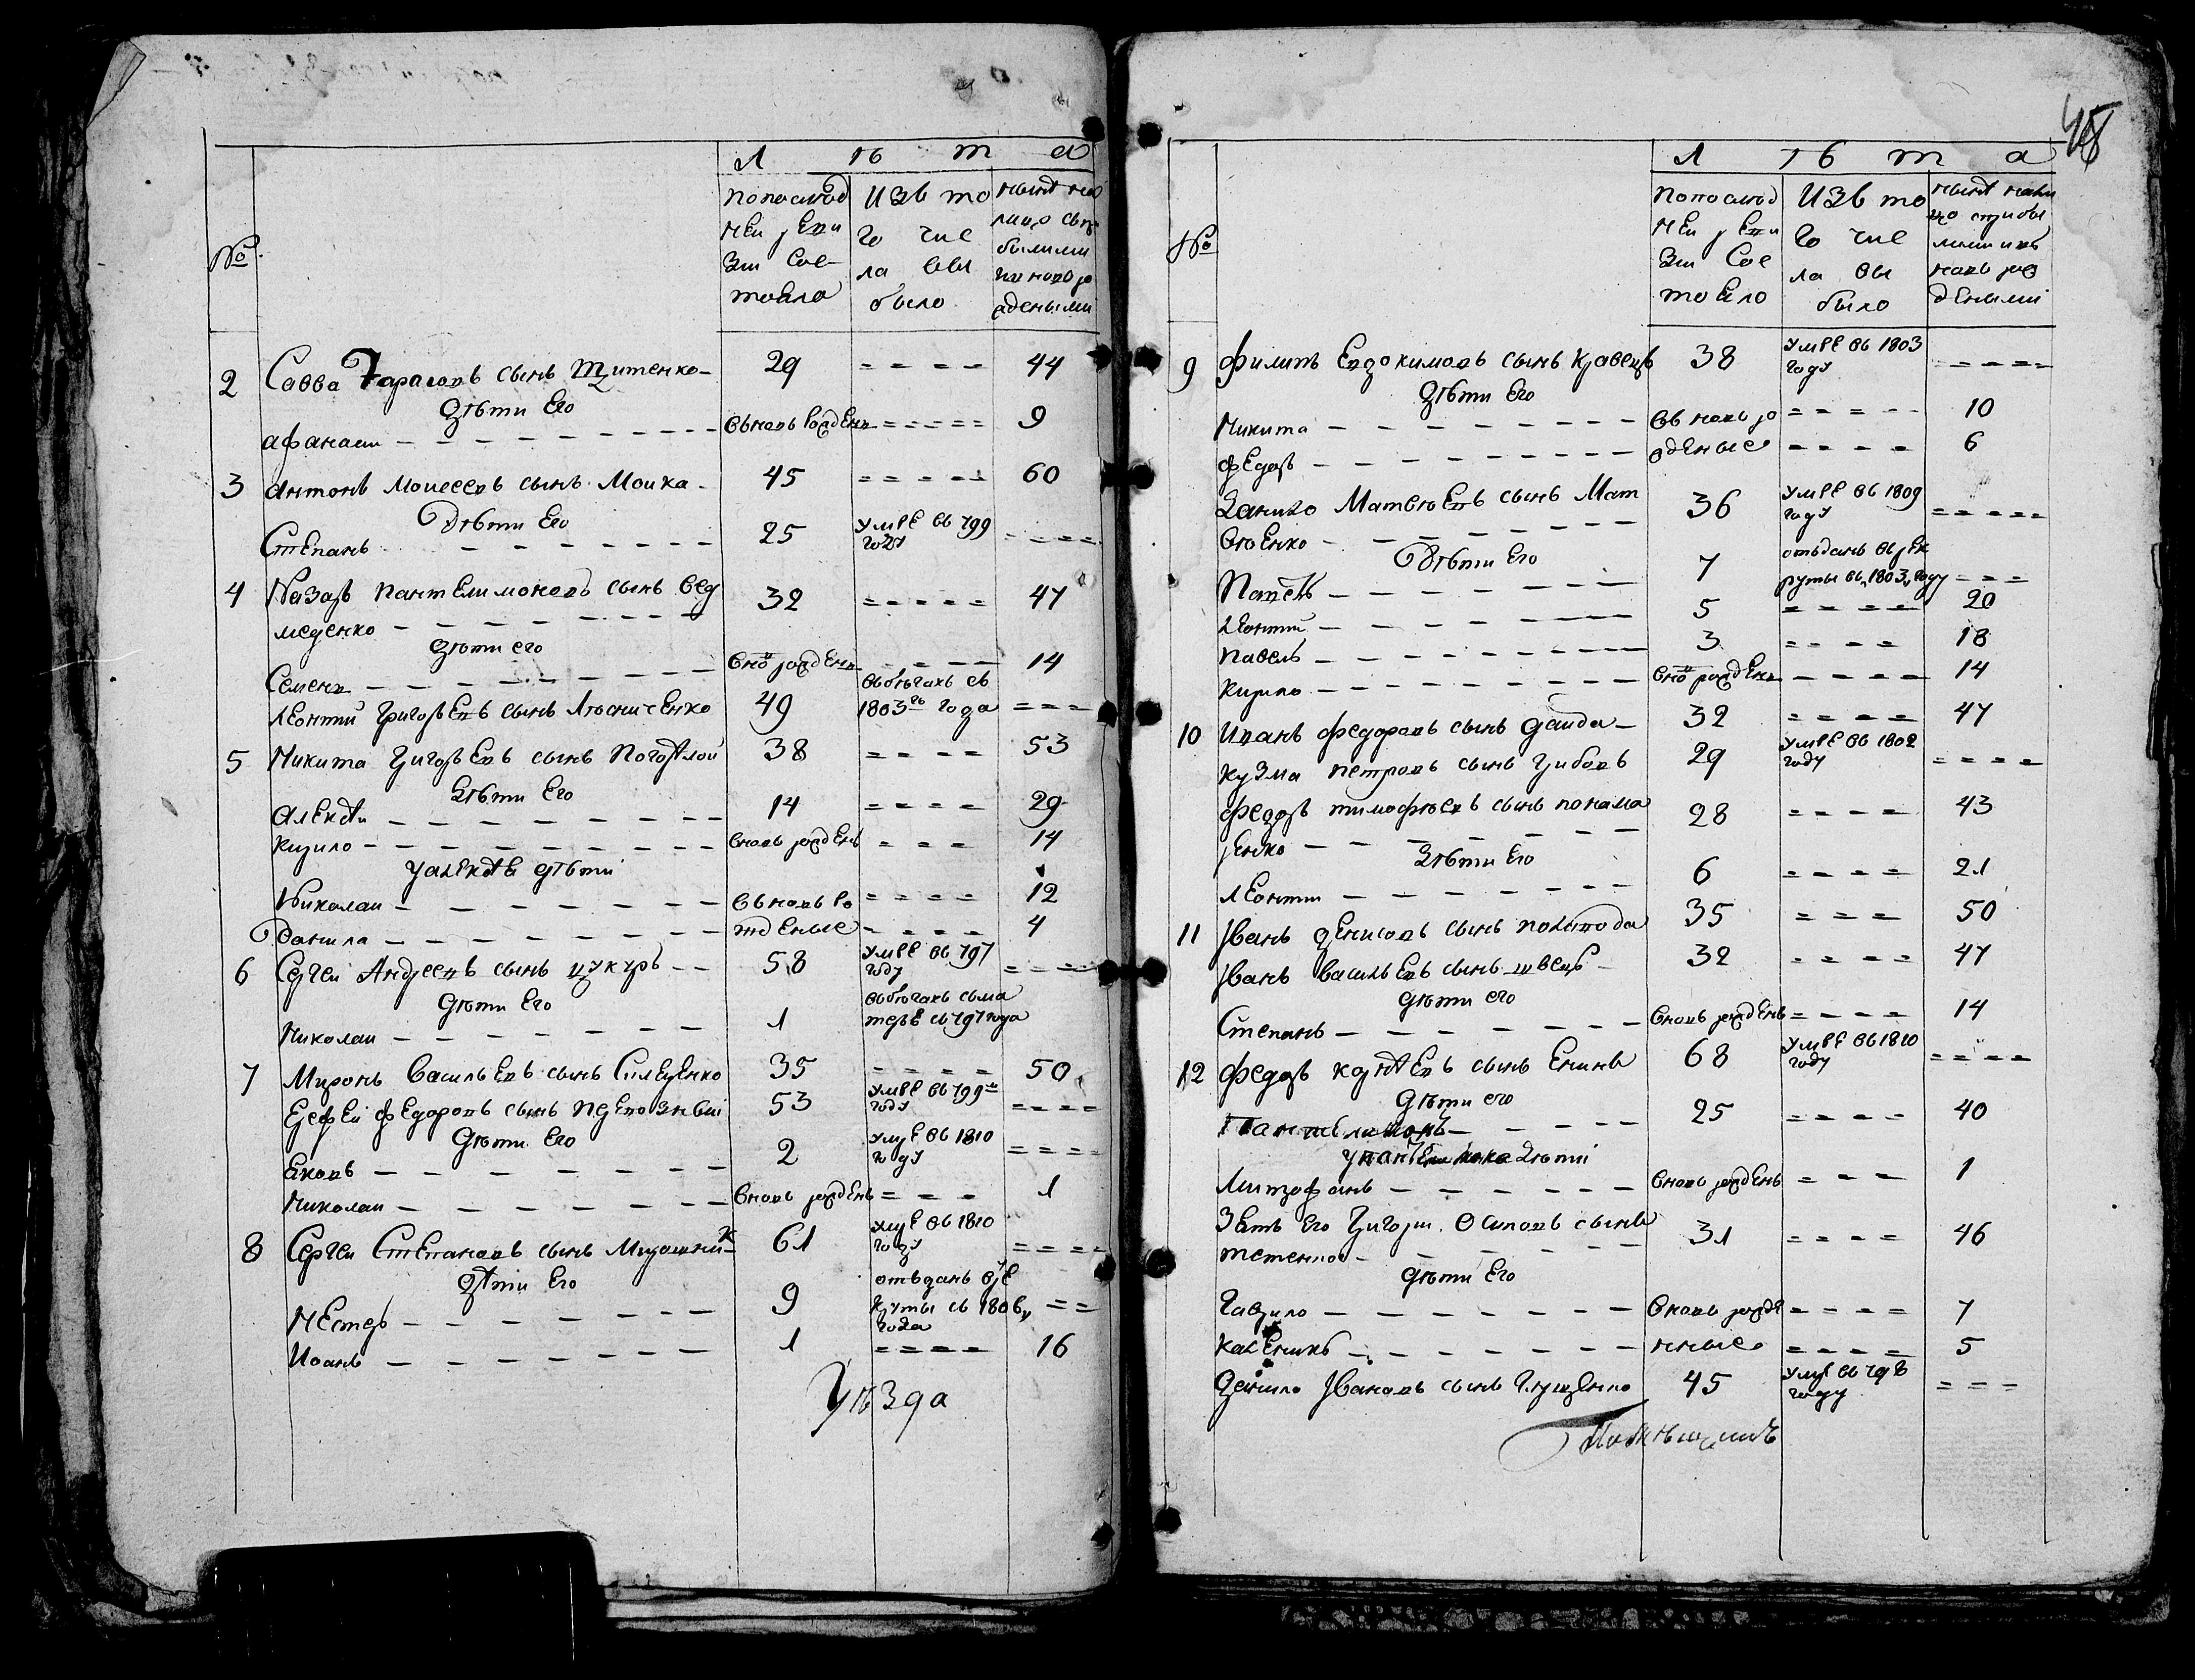 Л ѣ т а
№
По последней ревизии состояло
Изъ того числа выбыло
Ныне на лицо съ прибылыми и новорождеными
2 Савва Тарасовъ сынъ Титенко 29 = = = = 44
Дѣти Его
Афанаси — — — вновь рожденъ = = = = 9
3 Антонъ Моисеевъ сынъ Мошка 45 = = = = 60
Дѣти Его
Степанъ — — — 25 умре въ 799 году = = = =
4 Назаръ Пантелимоновъ сынъ Вед 32 = = = = 47
меденко — — —
Дѣти его
Семенъ — — — вно рожденъ = = = = 14
Леонтий Григорьевъ сынъ Лѣсниченко 49 въ бѣгахъ съ 1803го года = = =
5 Никита Григорьевъ сынъ Погорѣлой 38 = = = = 53
Дѣти Его
Алексѣи — — — 14 = = = = 29
Кирило — — — вновь рожденъ = = = 14
У Алексѣя дѣти
Николаи — — — вьновь ро = = = = 12
Данила — — — жденые = = = = 4
6 Сергеи Андреевъ сынъ Цукуръ — — 58 умре въ 797 году = = = =
Дѣти Его
Николаи — — — 1 въ бѣгахъ съ матерѣ съ 797 года
7 Миронъ Васильевъ сынъ Силеценко 35 = = = = 50
Ерефеи Федоровъ сынъ 53 умре въ 799м году = = = =
Дѣти Его
Яковъ — — — 2 умре въ 1810 году = = = =
Николаи — — — вновь рожденъ = = = 1
8 Сергеи Степановъ сынъ Мирошник 61 умре въ 1810 году = = = =
Дѣти Его
Нестеръ — — — 9 отъданъ в ре круты съ 1806 года = =
Иоанъ — — — 1 = = = = 16
Уѣзда
48
Л ѣ т а
№
По последней ревизии состояло
Изъ того числа выбыло
Ныне на лицо с прибылыми и новь рождеными
9 Филипъ Евдокимовъ сынъ Кравецъ 38 умре въ 1803 году = = = =
Дѣти Его
Никита — — — въновь ро = = = = 10
Федоръ — — — жденые = = = = 6
Данило Матвѣевъ сынъ Мат 36 умре въ 1809 году = = = =
вѣенко — — —
Дѣти Его
— — — 7 отъданъ въ рек руты въ 1803 году = = =
Леонтий — — — 5 = = = = 20
Павелъ — — — 3 = = = = 18
Кирило — — — вно рожденъ = = = = 14
10 Иванъ Федоровъ сынъ Гайда 32 = = = = 47
Кузма Петровъ сынъ Грибовъ 29 умре въ 1802 году = = = =
Федоръ Тимофѣевъ сынъ Понама 28 = = = = 43
ренко — — —
Дѣти Его
Леонтии — — — 6 = = = = 21
11 Иванъ Денисовъ сынъ 35 = = = 50
Иванъ Васильевъ сынъ Швецъ 32 = = = = 47
Дѣти его
Степанъ — — — вновь рожденъ = = = = 14
12 Федоръ Корнѣевъ сынъ Енинъ 68 умре въ 1810 году = = = =
Дѣти его
Пантелимонъ — — — 25 = = = = 40
У Пантелимона дѣти
Митрофанъ — — — вновь рожденъ = = = 1
Зять Его Григори Осиповъ сынъ 31 = = = = 46
Тетенко — — —
Дѣти Его
Гаврило — — — вновь рожде = = = = 7
Каленикъ — — — нные = = = = 5
Данило Ивановъ сынъ Глущенко 45 умре въ 798 году = = =